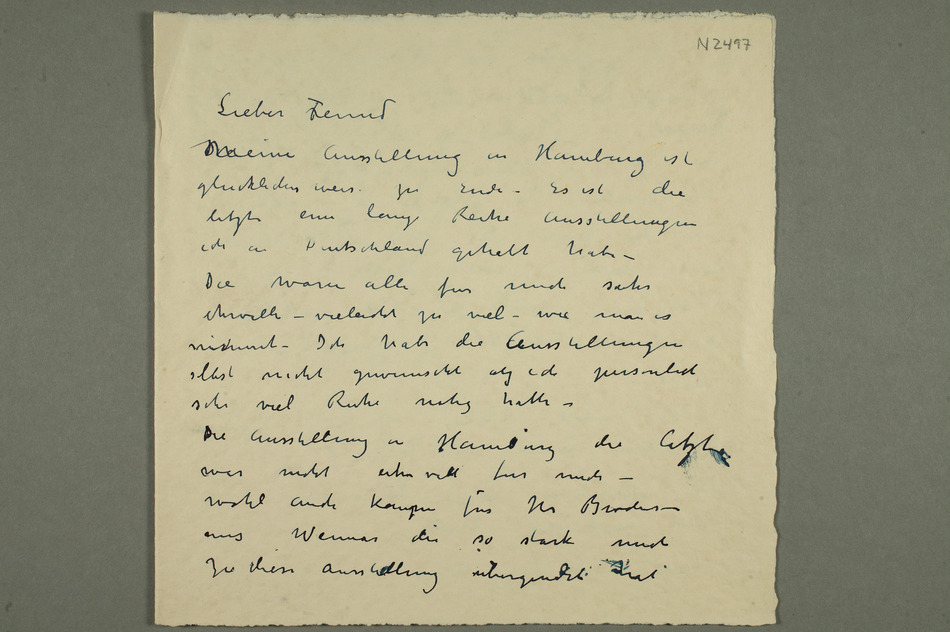 N2497
Lieber Freund
Meine Ausstellung in Hamburg ist
glücklicherweis. zu Ende – Es ist die
letzte eine lange Reihe Ausstellungen
ich in Deutschland gehabt habe –
Die waren alle für mich sehr
ehrvolle – vieleicht zu viel – wie man es
nimmt – Ich habe die Ausstellungen
selbst nicht gewünscht ich persönlich
sehr viel Ruhe nötig hatte –
Die Ausstellung in Hamburg die letzte
war nicht ehrvoll für mich –
wohl auch kaum für Hr
aus Weimar die so stark mich
zu diese Ausstellung hat